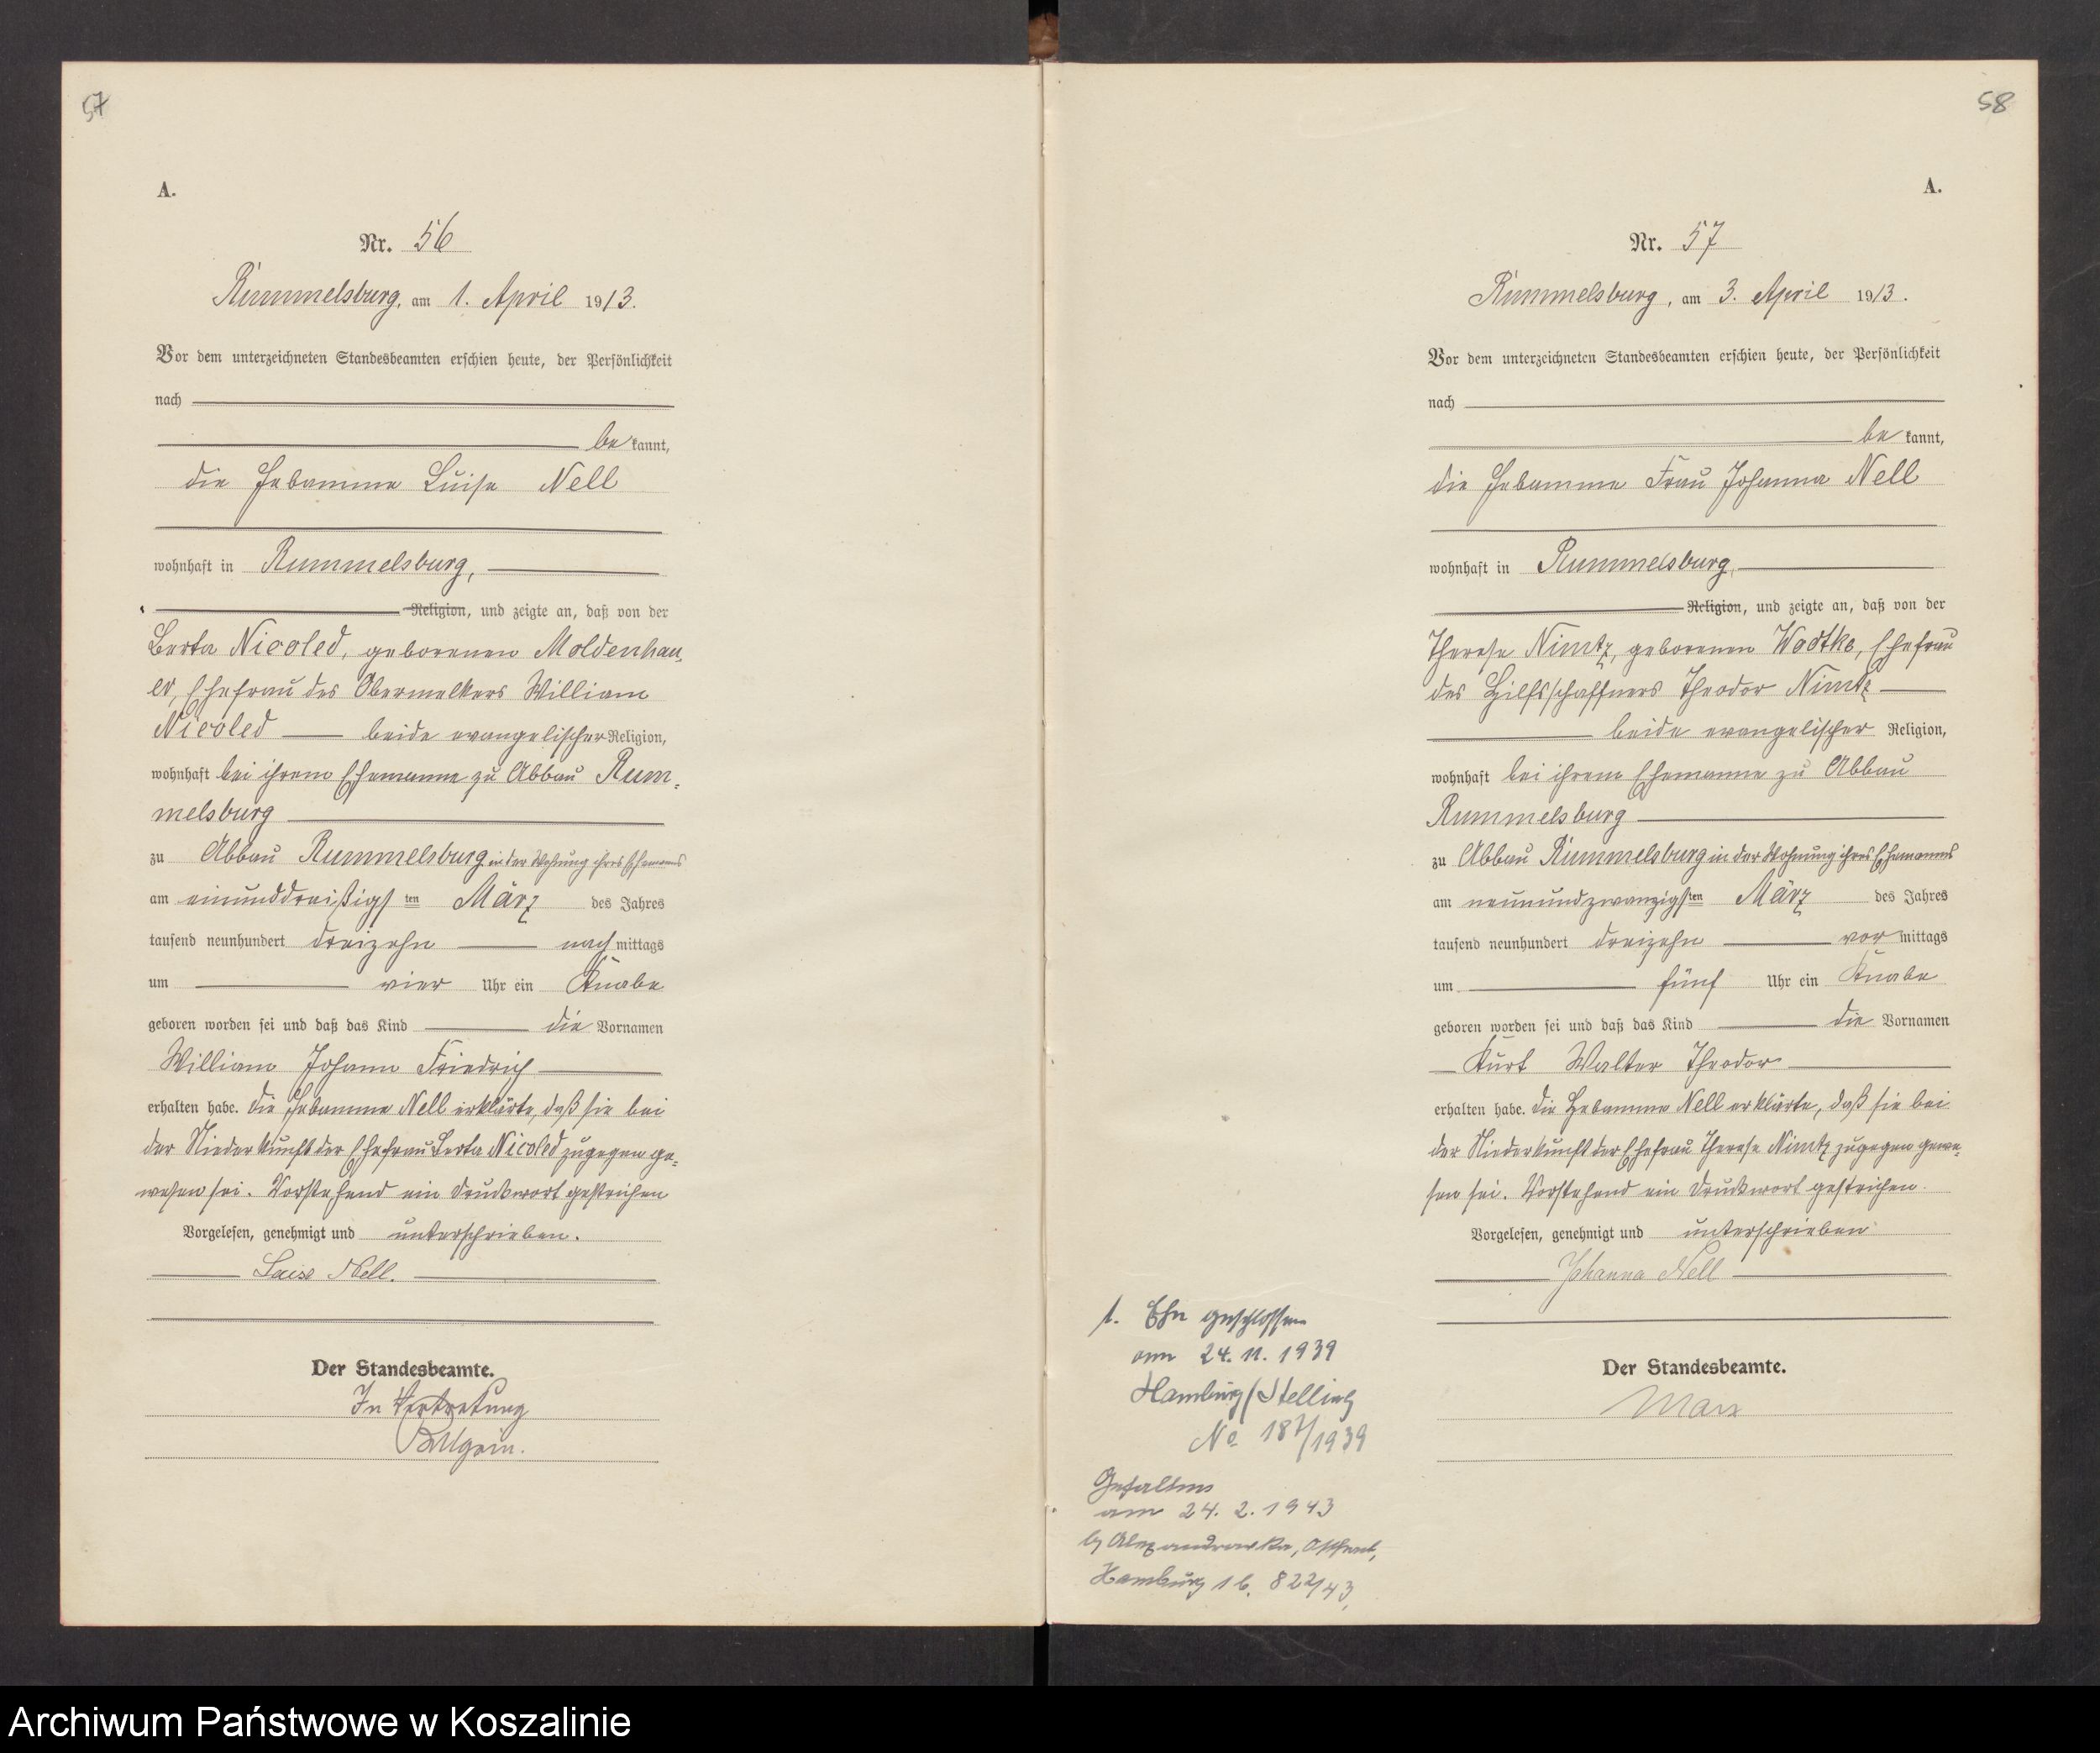 57
A.
Nr. 56
Rummelsburg, am 1. April 1913.
Vor dem unterzeichneten Standesbeamten erschien heute, der Persönlichkeit
nach
be kannt,
die Hebamme Luise Nell
wohnhaft in Rummelsburg,
Religion, und zeigte an, daß von der
Berta Nicoled, geborenen Moldenhau-
er, Ehefrau des Obermelkers William
Nicoled beide evangelischer Religion,
wohnhaft bei ihrem Ehemanne zu Abbau Rum-
melsburg
zu Abbau Rummelsburg in der Wohnung ihres Ehemanns
am einunddreißigsten März des Jahres
tausend neunhundert dreizehn nachmittags
um vier Uhr ein Knabe
geboren worden sei und daß das Kind die Vornamen
William Johann Friedrich
erhalten habe. Die Hebamme Nell erklärte, daß sie bei
der Niederkunft der Ehefrau Berta Nicoled zugegen ge-
wesen sei. Vorstehend ein Druckwort gestrichen
Vorgelesen, genehmigt und unterschrieben.
Luise Nell.
Der Standesbeamte.
In Vertretung
58
A.
Nr. 57
Rummelsburg, am 3. April 1913.
Vor dem unterzeichneten Standesbeamten erschien heute, der Persönlichkeit
nach
be kannt,
die Hebamme Frau Johanna Nell
wohnhaft in Rummelsburg,
Religion, und zeigte an, daß von der
Therese Nimtz, geborenen Wodtke, Ehefrau
des Hilfsschaffners Theodor Nimtz
beide evangelischer Religion,
wohnhaft bei ihrem Ehemanne zu Abbau
Rummelsburg
zu Abbau Rummelsburg in der Wohnung ihres Ehemannes
am neunundzwanzigsten März des Jahres
tausend neunhundert dreizehn vormittags
um fünf Uhr ein Knabe
geboren worden sei und daß das Kind die Vornamen
Kurt Walter Theodor
erhalten habe. Die Hebamme Nell erklärte, daß sie bei
der Niederkunft der Ehefrau Therese Nimtz zugegen gewe-
sen sei. Vorstehend ein Druckwort gestrichen.
Vorgelesen, genehmigt und unterschrieben
Johanna Nell
Der Standesbeamte.
Marx
1. Ehe geschlossen
am 24.11.1939
Hamburg/Stelling
No 187/1939
Gefallen
am 24.2.1943
b/ Alexandrowka, Ostfront,
Hamburg 1 b. 822/43.
Archiwum Państwowe w Koszalinie